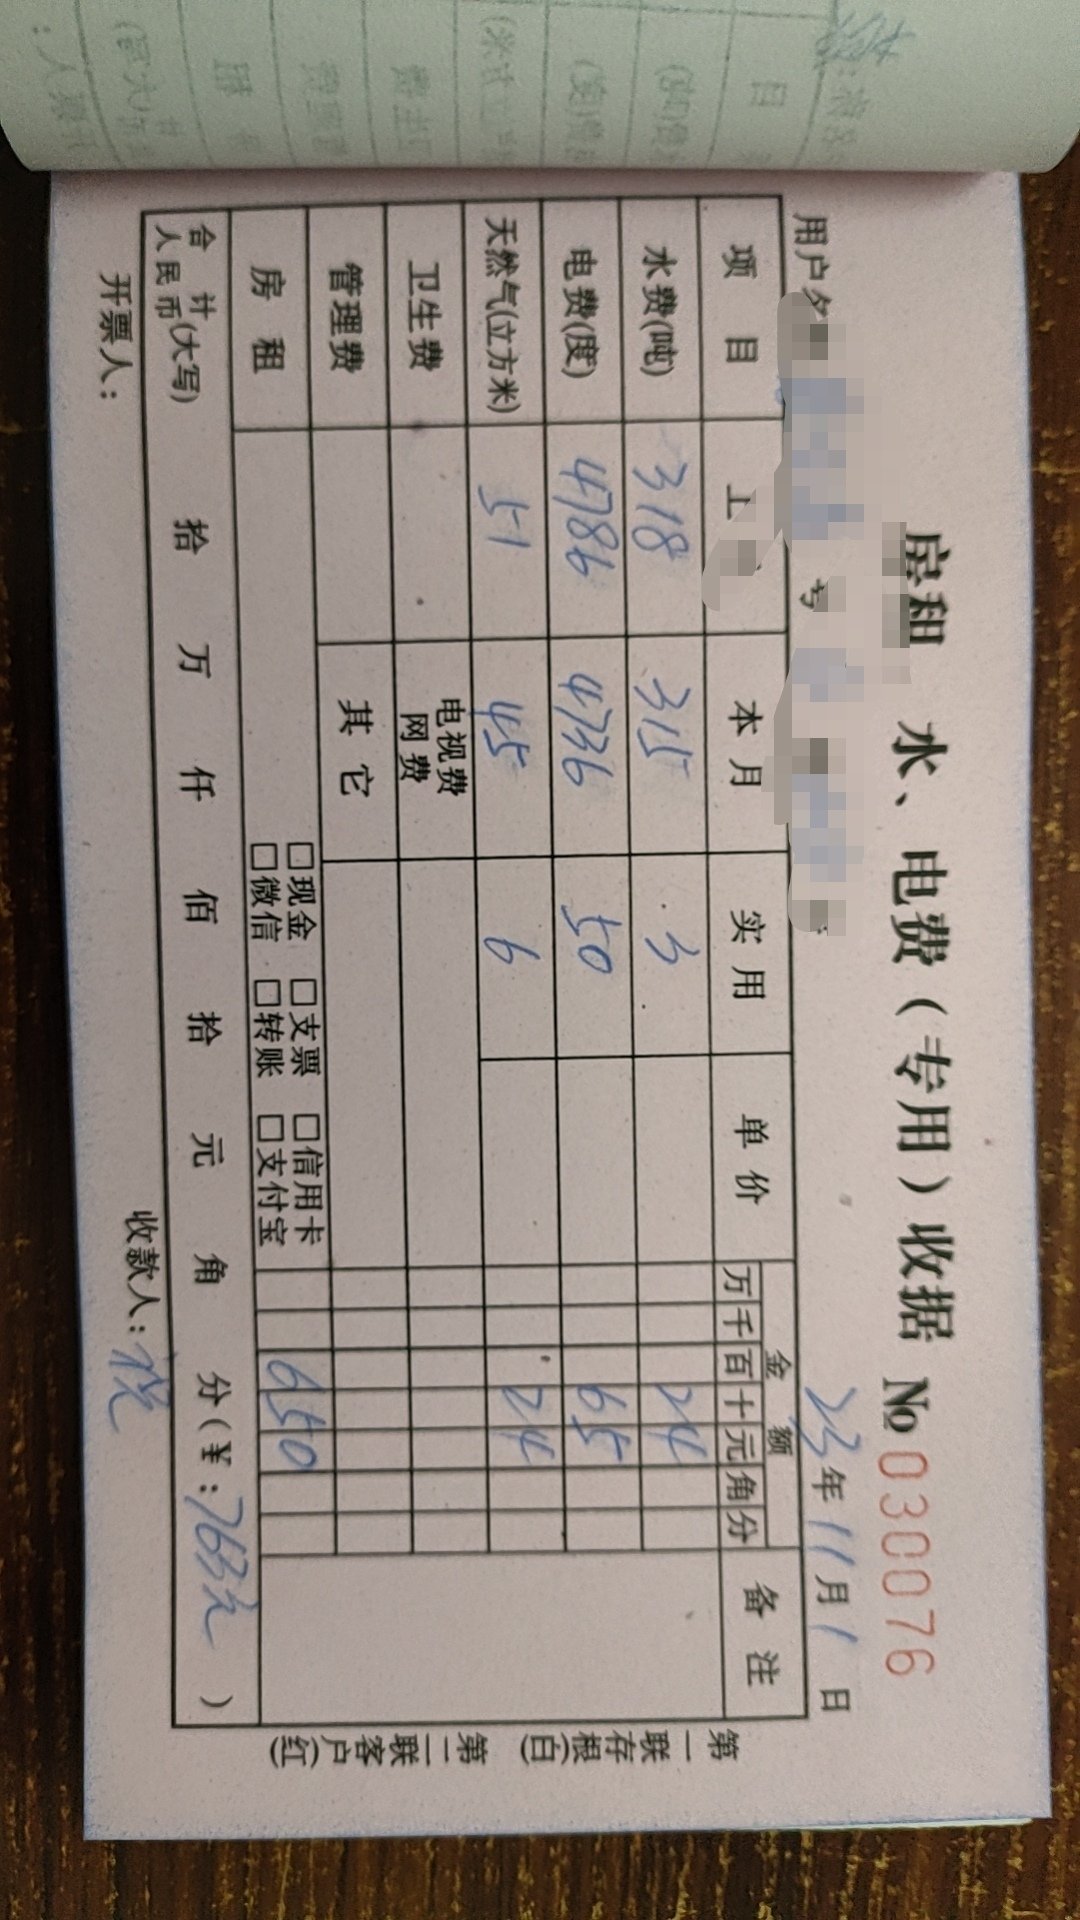 房租 水、电费(专用)收据 № 030076
用户名
号
23年11月1日
项目 上 本月 实用 单价 金额 备注
万 千 百 十 元 角 分
水费(吨) 318 315 3 24
电费(度) 4786 4736 50 65
天然气(立方米) 51 45 6 24
卫生费 电视费
网费
管理费 其它
房租 □现金 □支票 □信用卡 650
□微信 □转账 □支付宝
合计
人民币(大写) 拾 万 仟 佰 拾 元 角 分(¥:763元)
开票人: 收款人:
第一联存根(白) 第二联客户(红)